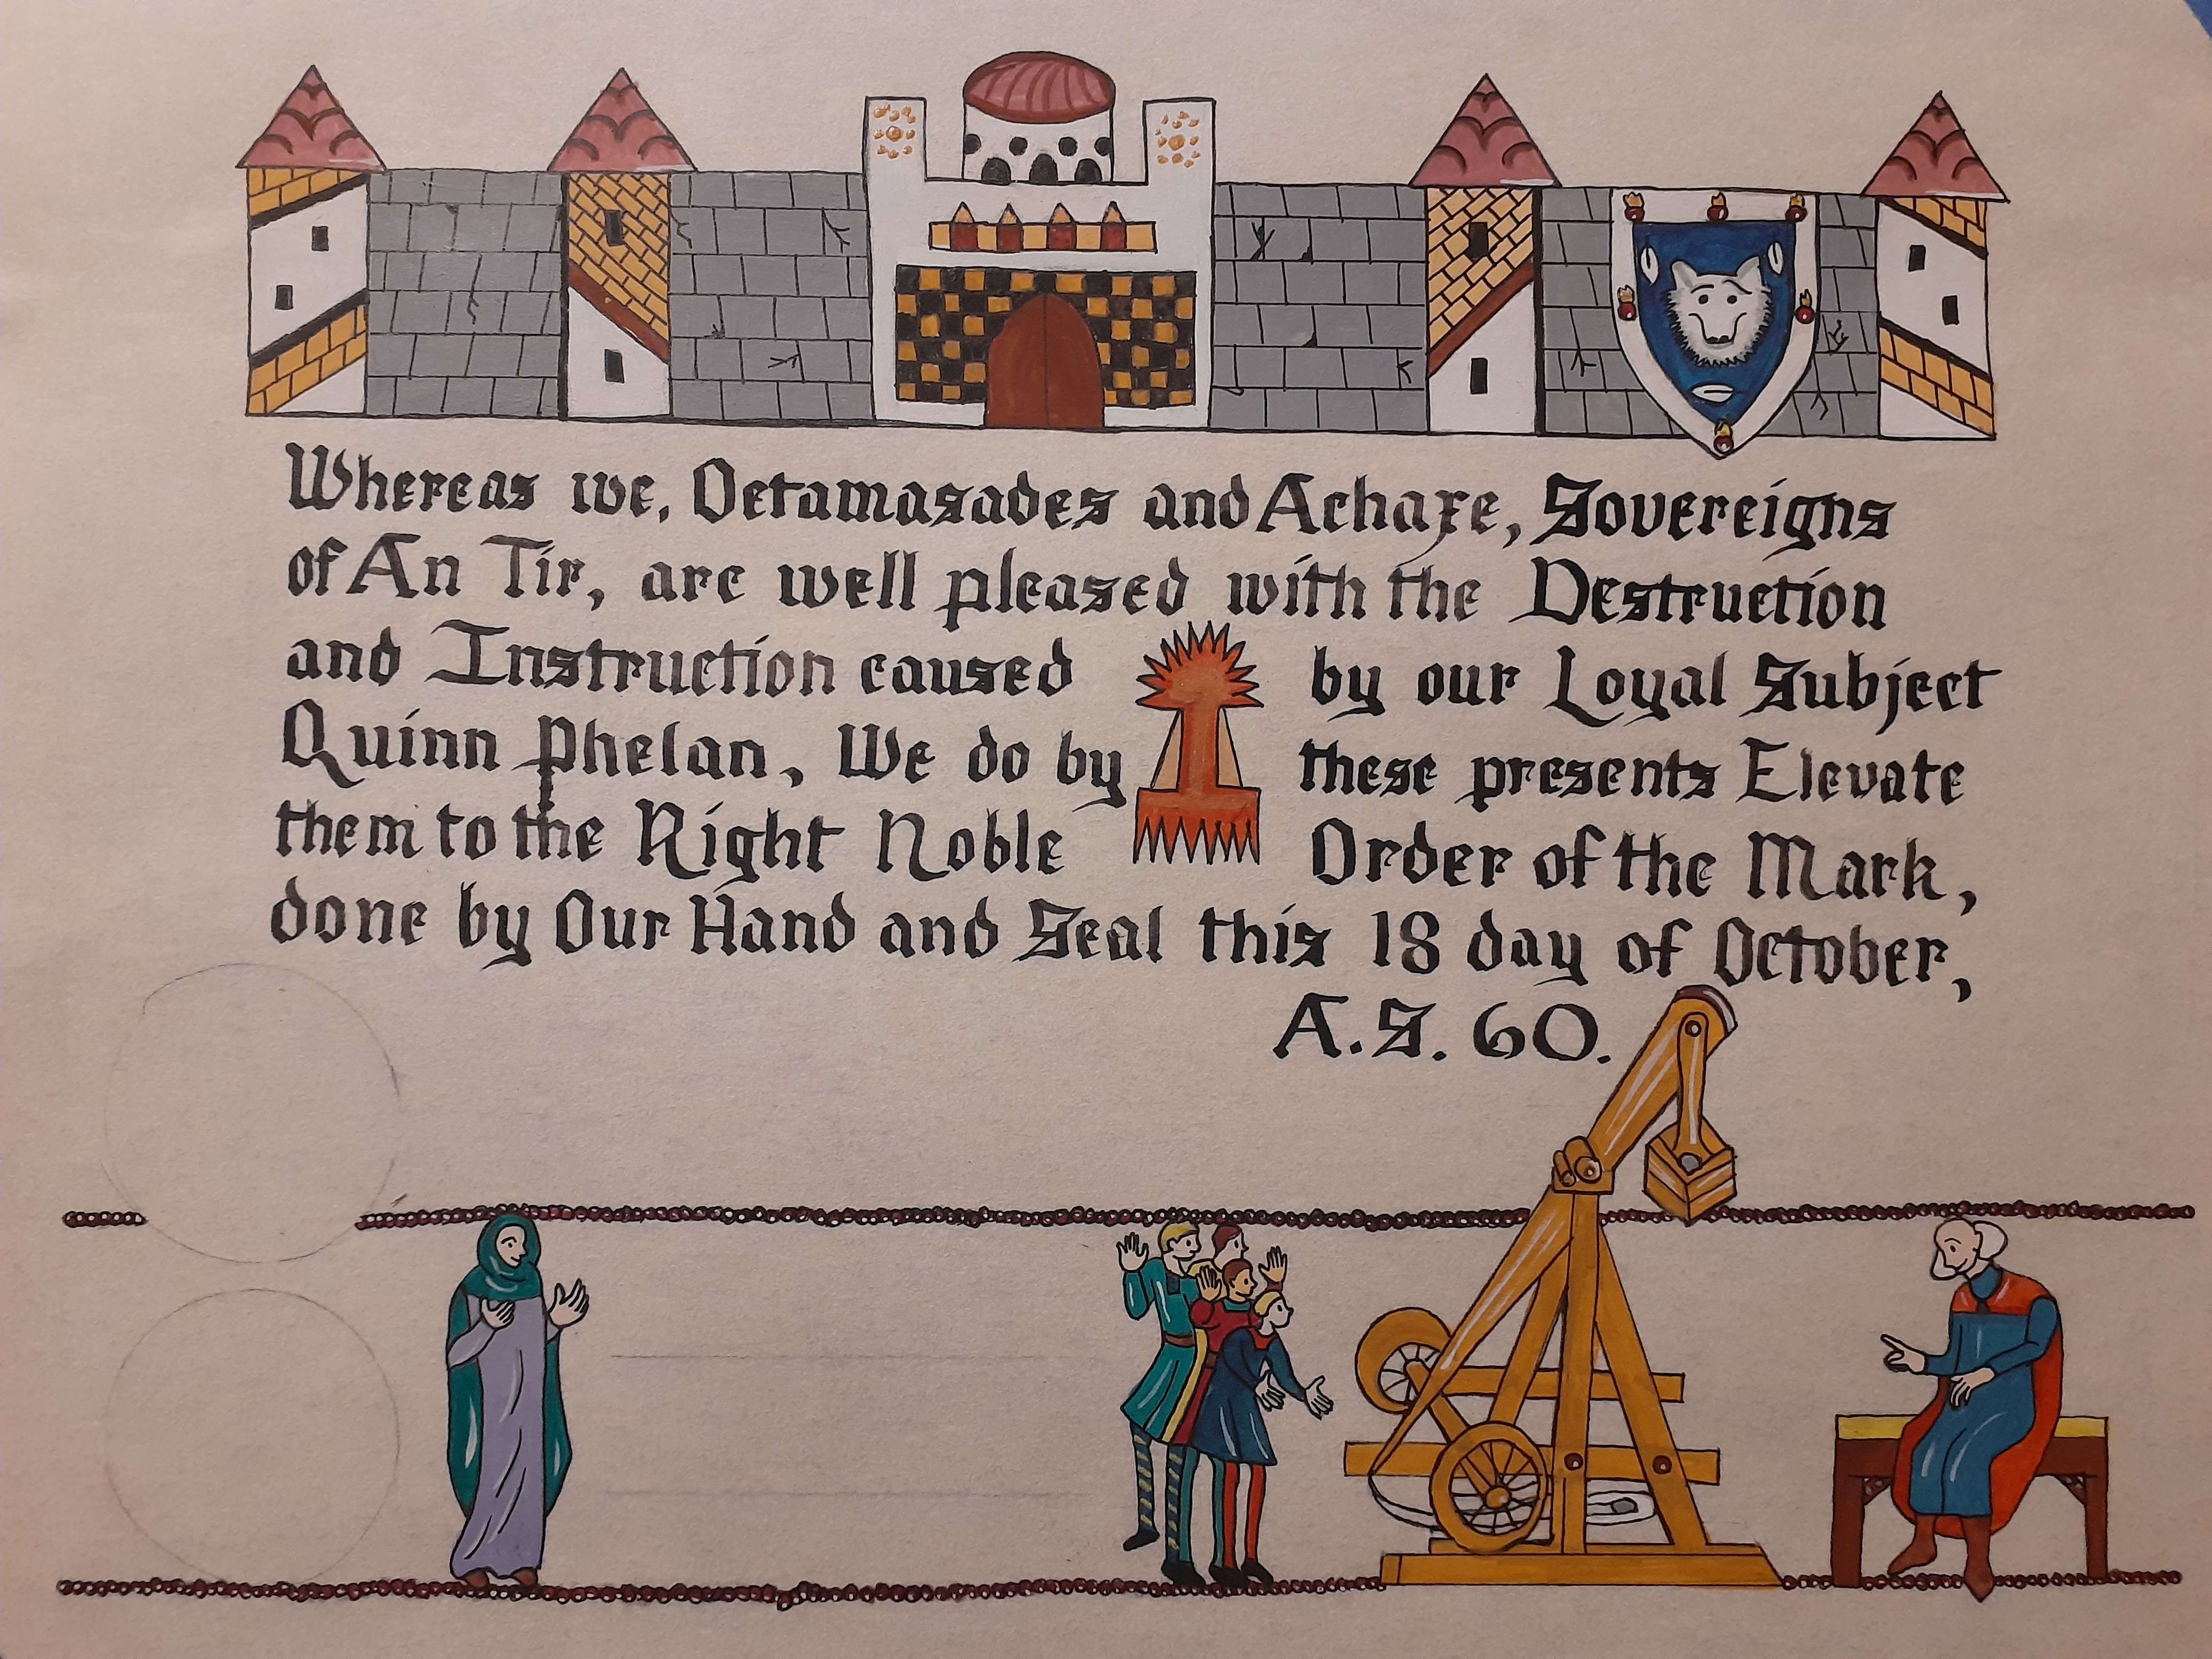 Whereas we, Octamasades and Achaxe, Sovereigns
of An Tir, are well pleased with the Destruction
and Instruction caused by our Loyal Subject
Quinn Phelan, We do by these presents Elevate
them to the Right Noble Order of the Mark,
done by Our Hand and Seal this 18 day of October,
A.S. 60.